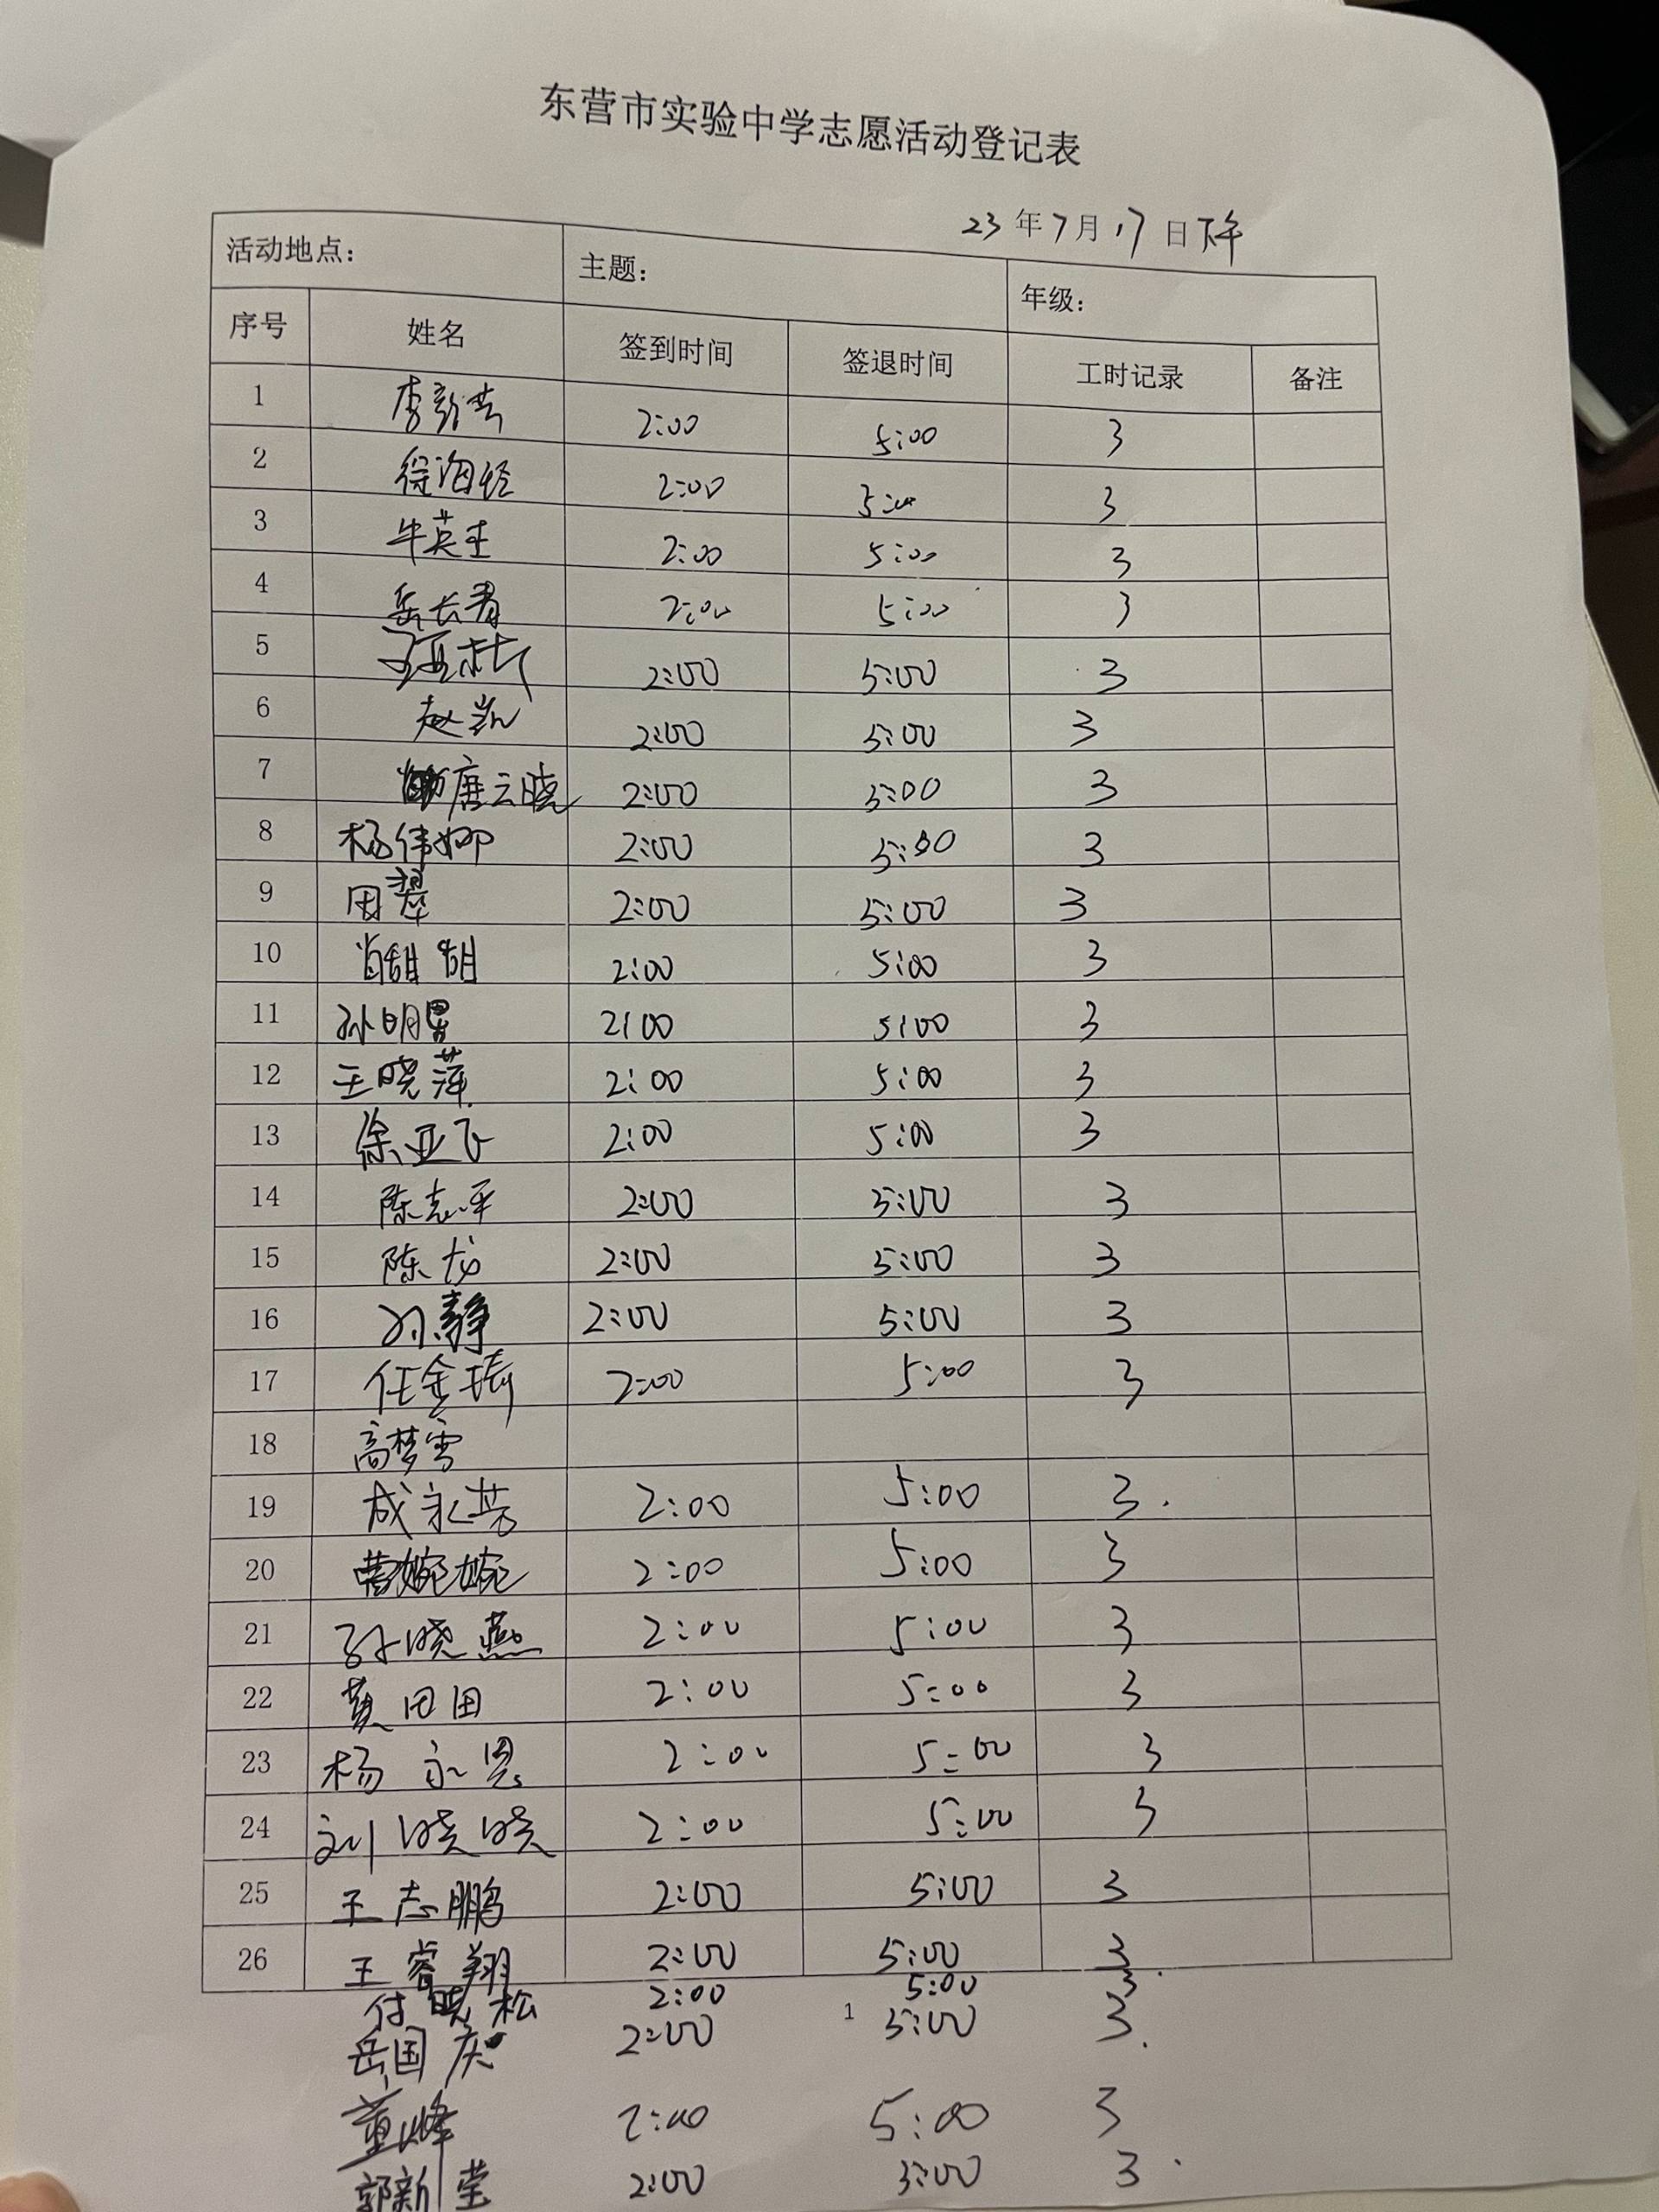 东营市实验中学志愿活动登记表
23年7月17日下午
活动地点: 主题: 年级:
序号 姓名 签到时间 签退时间 工时记录 备注
1 2:00 5:00 3
2 2:00 5:00 3
3 牛英 2:00 5:00 3
4 岳长青 2:00 5:00 3
5 2:00 5:00 3
6 赵凯 2:00 5:00 3
7 唐云晓 2:00 5:00 3
8 杨伟娜 2:00 5:00 3
9 田翠 2:00 5:00 3
10 2:00 5:00 3
11 孙明 2:00 5:00 3
12 王晓萍 2:00 5:00 3
13 徐亚飞 2:00 5:00 3
14 陈志平 2:00 5:00 3
15 陈龙 2:00 5:00 3
16 孙静 2:00 5:00 3
17 任金 2:00 5:00 3
18 高梦雪
19 成永芳 2:00 5:00 3
20 曹婉婉 2:00 5:00 3
21 孙晓燕 2:00 5:00 3
22 黄田田 2:00 5:00 3
23 杨永恩 2:00 5:00 3
24 刘晓晓 2:00 5:00 3
25 王志鹏 2:00 5:00 3
26 王睿翔 2:00 5:00 3
付晓松 2:00 5:00 3
1
岳国庆 2:00 5:00 3
董峰 2:00 5:00 3
郭新莹 2:00 5:00 3